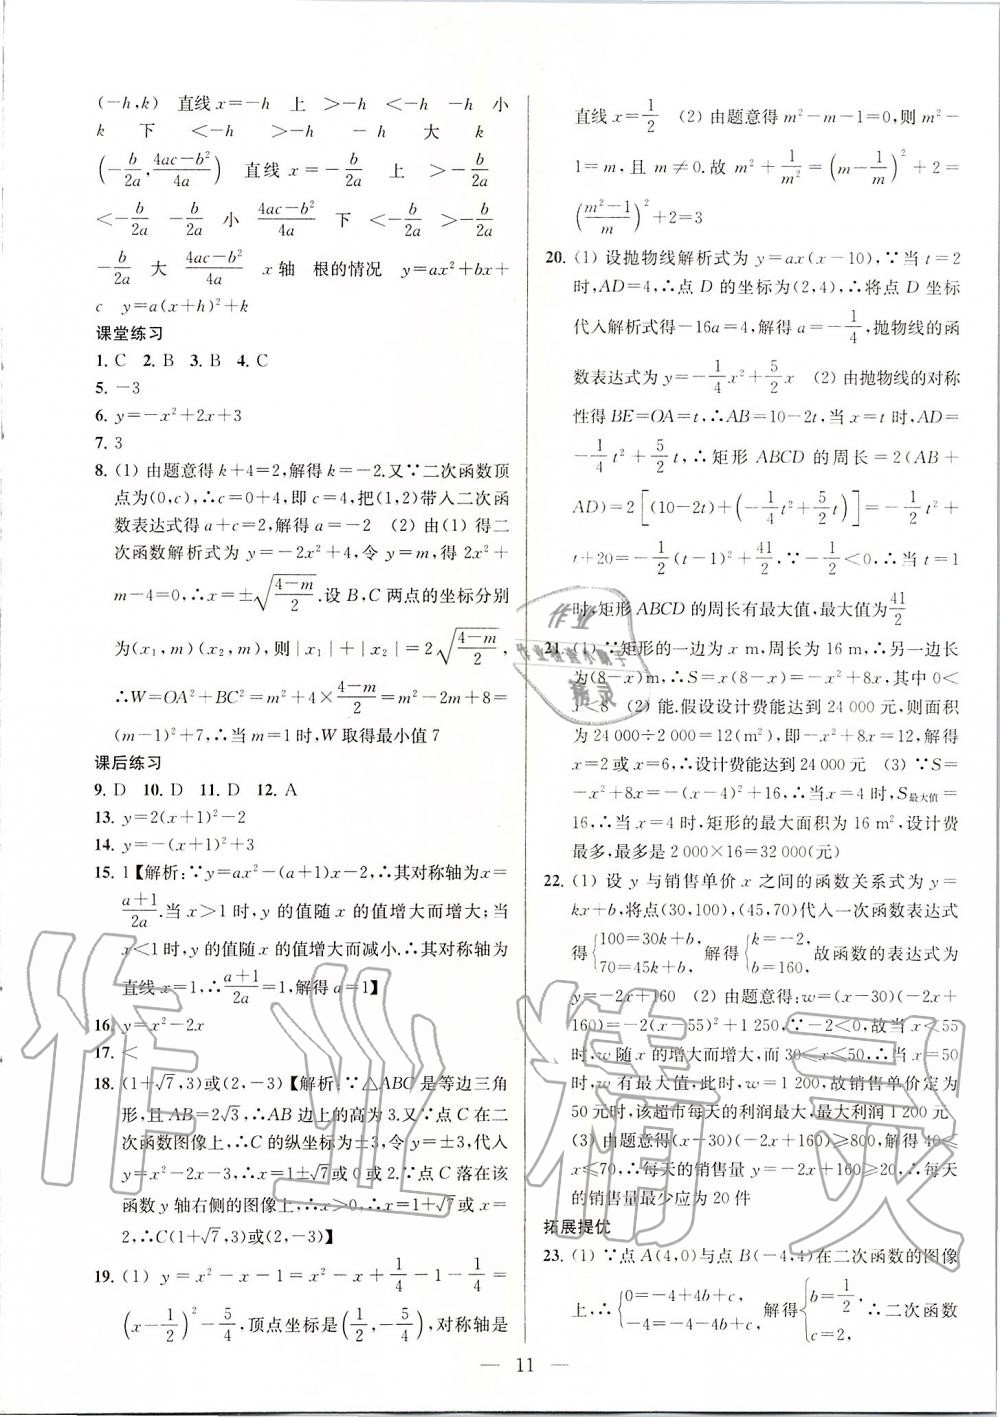 (－h,k)　直线 x＝－h　上　＞－h　＜－h　－h　小
k　下　＜－h　＞－h　－h　大　k
(－b/2a, (4ac－b²)/4a)　直线 x＝－b/2a　上　＞－b/2a
＜－b/2a　－b/2a　小　(4ac－b²)/4a　下　＜－b/2a　＞－b/2a
－b/2a　大　(4ac－b²)/4a　x 轴　根的情况　y＝ax²＋bx＋
c　y＝a(x＋h)²＋k
课堂练习
1. C　2. B　3. B　4. C
5. －3
6. y＝－x²＋2x＋3
7. 3
8. (1) 由题意得 k＋4＝2,解得 k＝－2.又∵二次函数顶
点为(0,c),∴c＝0＋4,即 c＝4,把(1,2)带入二次函
数表达式得 a＋c＝2,解得 a＝－2　(2) 由(1) 得二
次函数解析式为 y＝－2x²＋4,令 y＝m,得 2x²＋
m－4＝0,∴x＝±√((4－m)/2).设 B,C 两点的坐标分别
为(x₁,m)(x₂,m),则|x₁|＋|x₂|＝2√((4－m)/2),
∴W＝OA²＋BC²＝m²＋4×(4－m)/2＝m²－2m＋8＝
(m－1)²＋7,∴当 m＝1 时,W 取得最小值 7
课后练习
9. D　10. D　11. D　12. A
13. y＝2(x＋1)²－2
14. y＝－(x＋1)²＋3
15. 1【解析:∵y＝ax²－(a＋1)x－2,∴其对称轴为 x＝
(a＋1)/2a.当 x＞1 时,y 的值随 x 的值增大而增大;当
x＜1 时,y 的值随 x 的值增大而减小.∴其对称轴为
直线 x＝1,∴(a＋1)/2a＝1,解得 a＝1】
16. y＝x²－2x
17. ＜
18. (1＋√7,3)或(2,－3)【解析:∵△ABC 是等边三角
形,且 AB＝2√3,∴AB 边上的高为 3.又∵点 C 在二
次函数图像上,∴C 的纵坐标为±3,令 y＝±3,代入
y＝x²－2x－3,∴x＝1±√7或 0 或 2.∵点 C 落在该
函数 y 轴右侧的图像上,∴x＞0,∴x＝1＋√7或 x＝
2,∴C(1＋√7,3)或(2,－3)】
19. (1) y＝x²－x－1＝x²－x＋1/4－1－1/4＝
(x－1/2)²－5/4,顶点坐标是(1/2,－5/4),对称轴是
直线 x＝1/2　(2) 由题意得 m²－m－1＝0,则 m²－
1＝m,且 m≠0.故 m²＋1/m²＝(m－1/m)²＋2＝
((m²－1)/m)²＋2＝3
20. (1) 设抛物线解析式为 y＝ax(x－10),∵当 t＝2
时,AD＝4,∴点 D 的坐标为(2,4),∴将点 D 坐标
代入解析式得－16a＝4,解得 a＝－1/4,抛物线的函
数表达式为 y＝－1/4x²＋5/2x　(2) 由抛物线的对称
性得 BE＝OA＝t,∴AB＝10－2t,当 x＝t 时,AD＝
－1/4t²＋5/2t,∴矩形 ABCD 的周长＝2(AB＋
AD)＝2[(10－2t)＋(－1/4t²＋5/2t)]＝－1/2t²＋
t＋20＝－1/2(t－1)²＋41/2,∵－1/2＜0,∴当 t＝1
时,矩形 ABCD 的周长有最大值,最大值为41/2
21. (1) ∵矩形的一边为 x m,周长为 16 m,∴另一边
长为(8－x)m,∴S＝x(8－x)＝－x²＋8x,其中 0＜
x＜8　(2) 能.假设设计费能达到 24 000 元,则面积
为 24 000÷2 000＝12(m²),即－x²＋8x＝12,解得
x＝2 或 x＝6,∴设计费能达到 24 000 元　(3) ∵S＝
－x²＋8x＝－(x－4)²＋16,∴当 x＝4 时,S最大值＝
16,∴当 x＝4 时,矩形的最大面积为 16 m²,设计费
最多,最多是 2 000×16＝32 000(元)
22. (1) 设 y 与销售单价 x 之间的函数关系式为 y＝
kx＋b,将点(30,100),(45,70)代入一次函数表达式
得{100＝30k＋b, 70＝45k＋b,　解得{k＝－2, b＝160,　故函数的表达式为
y＝－2x＋160　(2) 由题意得:w＝(x－30)(－2x＋
160)＝－2(x－55)²＋1 250,∵－2＜0,故当 x＜55
时,w 随 x 的增大而增大,而 30≤x≤50,∴当 x＝50
时,w 有最大值,此时,w＝1 200,故销售单价定为
50 元时,该超市每天的利润最大,最大利润 1 200 元
(3) 由题意得(x－30)(－2x＋160)≥800,解得 40≤
x≤70,∴每天的销售量 y＝－2x＋160≥20,∴每天
的销售量最少应为 20 件
拓展提优
23. (1) ∵点 A(4,0)与点 B(－4,4)在二次函数的图像
上,∴{0＝－4＋4b＋c, －4＝－4－4b＋c,　解得{b＝1/2, c＝2,　∴二次函数
— 11 —
作业精灵